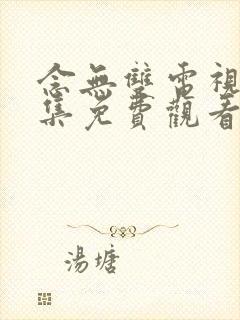 念無雙電視
集免費觀看
湯塘